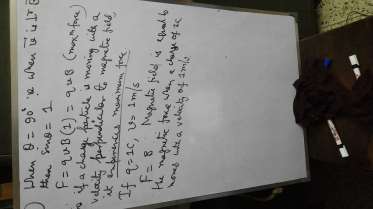 When θ = 90° ie when v is ⊥r B
then sinθ = 1
F = qvB(1) = qvB (max m force)
if a charge particle is moving with a
velocity perpendicular to magnetic field,
it experiences maximum force
If q = 1C, v = 1m/s
F = B Magnetic field is equal to
the magnetic force when a charge of 1C
moves with a velocity of 1m/s